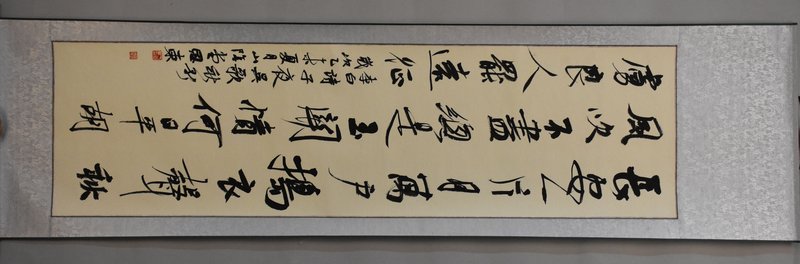 長安一片月萬户搗衣聲秋
風吹不盡總是玉關情何日平胡
虜良人罷遠征
李白詩子夜吳歌
歲次乙未夏月山陰